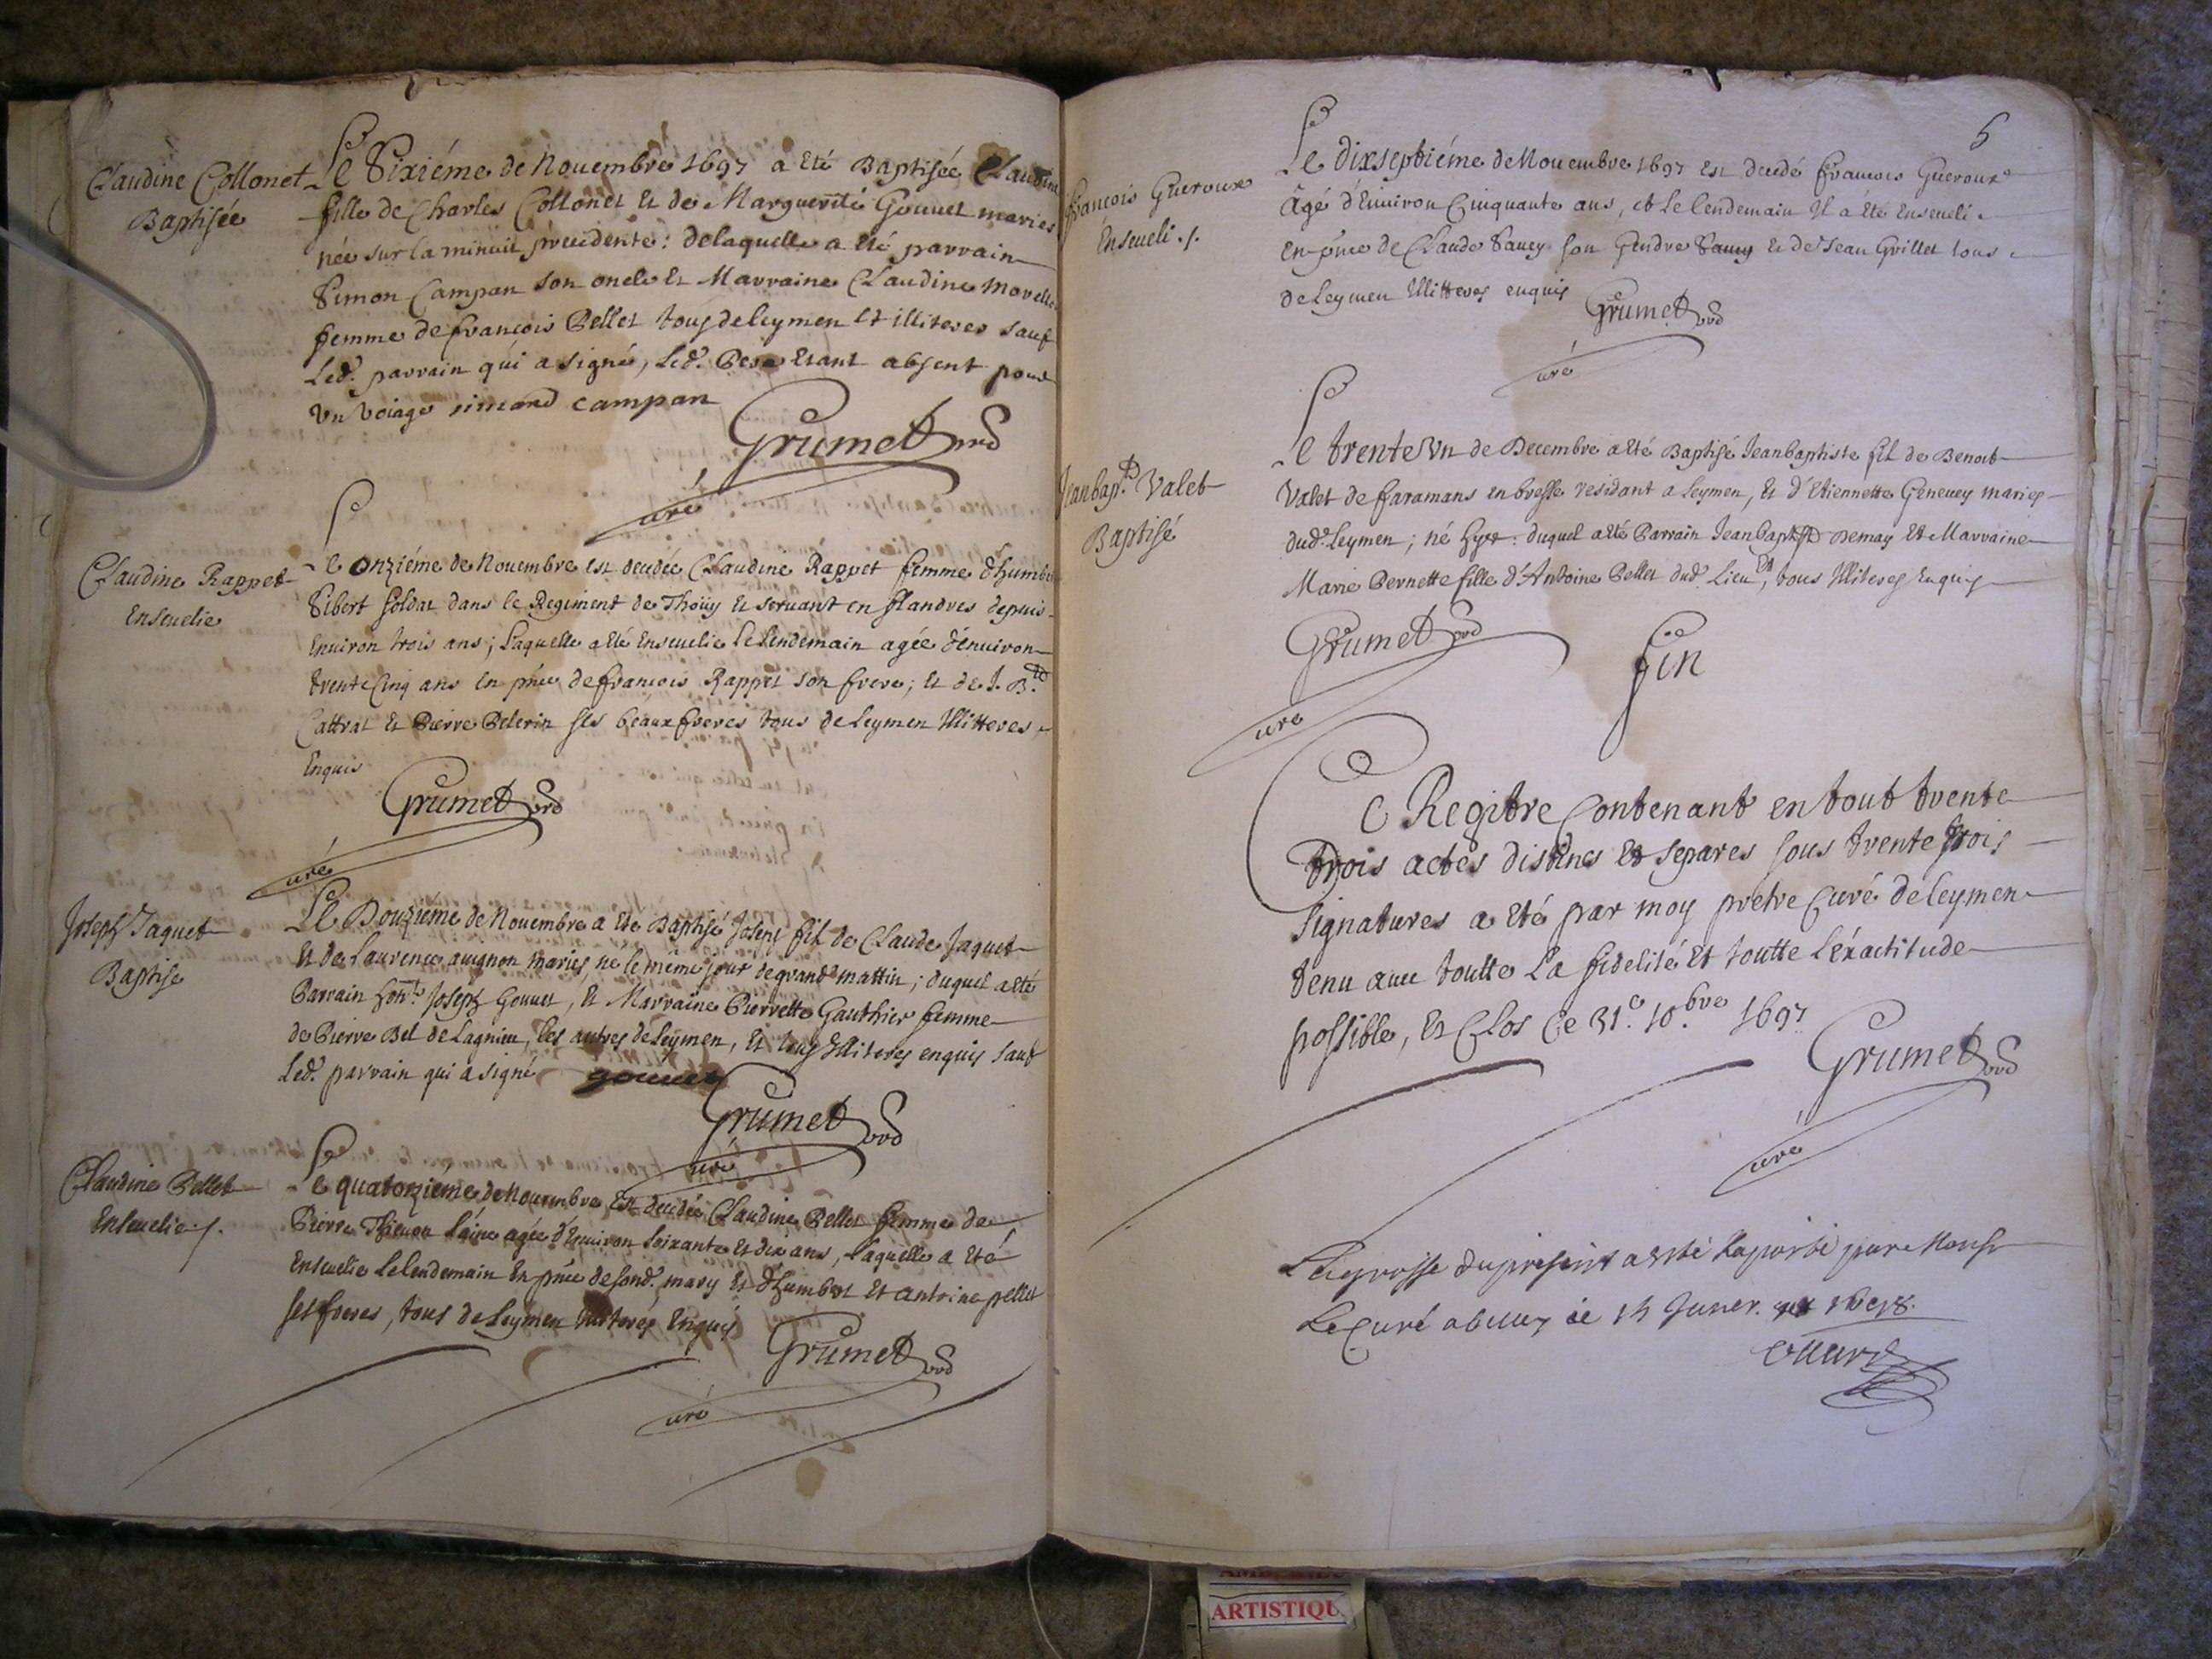 Claudine Collonet
Baptisée
Le Sixiéme de Nouembre 1697 a eté Baptisée Claudine
fille de Charles Collonet et de Marguerite Gouuet mariés
née sur la minuit précedente: delaquelle a eté parrain
Simon Campan son oncle et Marraine Claudine Morelle
femme de françois Pellet tous de leymen et illiteres sauf
led. parrain qui a signé, led. Pere etant absent pour
un voiage simond campan
Grumet
curé
Claudine Rappet
Enseuelie
Le onziéme de Nouembre est decedée Claudine Rappet femme d'humbert
Sibert soldat dans le Regiment de Thoüy et seruant en flandres depuis
enuiron trois ans; laquelle a eté enseuelie le lendemain agée d'enuiron
trente cinq ans en pnce de françois Rappet son frere; et de J. B.te
Cattrat et Pierre Pelerin ses beaux freres tous de leymen illitteres
enquis
Grumet
curé
Joseph Jaquet
Baptise
Le Douziéme de Nouembre a eté Baptisé Joseph fil de Claude Jaquet
et de Laurence auignon mariés, né le méme jour de grand mattin; duquel a eté
Parrain hon.t Joseph Gouuet, et Marraine Pierrette Gauthier femme
de Pierre Bel de Lagnieu, les autres de leymen, et tous illiteres enquis sauf
led. parrain qui a signé gouuet
Grumet
curé
Claudine Pellet
Enseuelie ./.
Le quatorziéme de Nouembre est decedée Claudine Pellet femme de
Pierre Theuon l'ainé agée d'enuiron soixante et dix ans, laquelle a eté
enseuelie le lendemain en pnce de sond. mary et d'humbert et antoine pellet
ses freres, tous de leymen illiterés enquis
Grumet
curé
5
françois Gueroux
Enseueli ./.
Le dixseptiéme de Nouembre 1697 est decedé françois Gueroux
âgé d'enuiron Cinquante ans, et le lendemain il a eté enseueli
en pnce de Claude Sauey son gendre et de Jean Grillet tous
de leymen illitteres enquis
Grumet
curé
Jean bap.te Valet
Baptisé
Le trente un de Decembre a eté Baptisé Jean baptiste fil de Benoit
Valet de faramans en bresse residant a leymen, et d'Etiennette Geneuey mariés
dud. leymen; né hyer: duquel a eté Parrain Jean baptiste Demay et Marraine
Marie Pernette fille d'Antoine Pellet dud. lieu, tous illiteres enquis
Grumet
curé
fin
Ce Regitre Contenant en tout trente
trois actes distincs et separes sous trente trois
signatures a eté par moy prétre Curé de leymen
tenu auec toutte la fidelité et toutte l'éxactitude
possible, et Clos Ce 31.e 10.bre 1697
Grumet
curé
La grosse du present a esté raporté par Mons.r
Le Curé